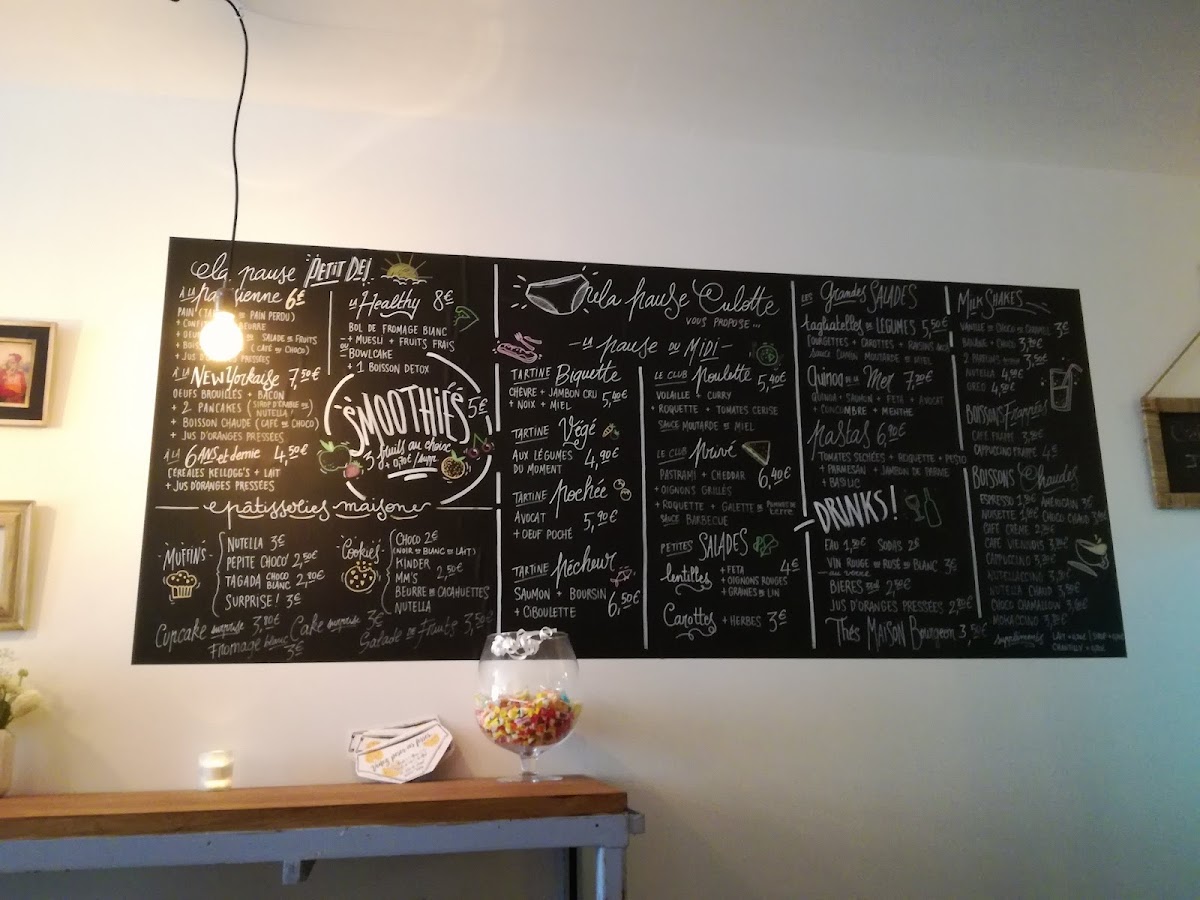 la pause PETIT DEJ
À LA parisienne 6€
PAIN (
+ BEURRE
SALADE DE FRUITS
(CAFÉ OU CHOCO)
+ JUS D'ORANGES PRESSÉES
À LA NEW Yorkaise 7,50€
OEUFS BROUILLÉS + BACON
+ 2 PANCAKES (SIROP D'ÉRABLE OU NUTELLA!
+ BOISSON CHAUDE (CAFÉ OU CHOCO)
+ JUS D'ORANGES PRESSÉES
À LA 6 ANS et demie 4,50€
CÉRÉALES KELLOGG'S + LAIT
+ JUS D'ORANGES PRESSÉES
LA Healthy 8€
BOL DE FROMAGE BLANC
+ MUESLI + FRUITS FRAIS
OU BOWLCAKE
+ 1 BOISSON DETOX
SMOOTHIES 5€
3 fruits au choix
+ 0,70€ /supp.
pâtisseries maison
MUFFINS
NUTELLA 3€
PEPITE CHOCO 2,50€
TAGADA CHOCO BLANC 2,80€
SURPRISE! 3€
Cookies
CHOCO 2€
(NOIR OU BLANC OU LAIT)
KINDER
MM'S 2,50€
BEURRE DE CACAHUETTES
NUTELLA
Cupcake surprise 3,90€
Cake surprise 3€
Fromage blanc 3€
Salade DE Fruits 3,50€
la pause Culotte
VOUS PROPOSE...
LA pause DU MIDI
TARTINE Biquette
CHÈVRE + JAMBON CRU 5,40€
+ NOIX + MIEL
TARTINE Végé
AUX LÉGUMES
DU MOMENT 4,90€
TARTINE pochée
AVOCAT 5,90€
+ OEUF POCHÉ
TARTINE pêcheur
SAUMON + BOURSIN
+ CIBOULETTE 6,50€
LE CLUB poulette
VOLAILLE + CURRY 5,40€
+ ROQUETTE + TOMATES CERISE
SAUCE MOUTARDE ET MIEL
LE CLUB privé
PASTRAMI + CHEDDAR 6,40€
+ OIGNONS GRILLÉS
+ ROQUETTE + GALETTE DE POMMES DE TERRE
SAUCE BARBECUE
PETITES SALADES
lentilles + FETA 4€
+ OIGNONS ROUGES
+ GRAINES DE LIN
Carottes + HERBES 3€
LES Grandes SALADES
tagliatelles DE LÉGUMES 5,50€
COURGETTES + CAROTTES + RAISINS
SAUCE CUMIN MOUTARDE ET MIEL
Quinoa DE LA Mer 7,20€
QUINOA + SAUMON + FETA + AVOCAT
+ CONCOMBRE + MENTHE
pastas 6,90€
TOMATES SÉCHÉES + ROQUETTE + PESTO
+ PARMESAN + JAMBON DE PARME
+ BASILIC
DRINKS!
EAU 1,50€ SODAS 2€
VIN ROUGE OU ROSÉ OU BLANC 3€
au verre
BIÈRES 2,50€
JUS D'ORANGES PRESSÉES 2,50€
Thés MAISON Bourgeon 3,50€
MILK SHAKES
VANILLE OU CHOCO OU COCO 3€
BANANE + CHOCO 3,50€
2 PARFUMS 3,50€
NUTELLA 4,00€
OREO 4,50€
BOISSONS Frappées
CAFÉ FRAPPÉ 3€
CAPPUCCINO FRAPPÉ 4€
BOISSONS Chaudes
ESPRESSO AMÉRICAIN
NOISETTE CHOCO CHAUD
CAFÉ CRÈME
CAFÉ VIENNOIS 3€
CAPPUCCINO 3,50€
NUTELLACCINO
NUTELLA CHAUD
CHOCO CHAMALLOW
MOKACCINO
suppléments
CHANTILLY